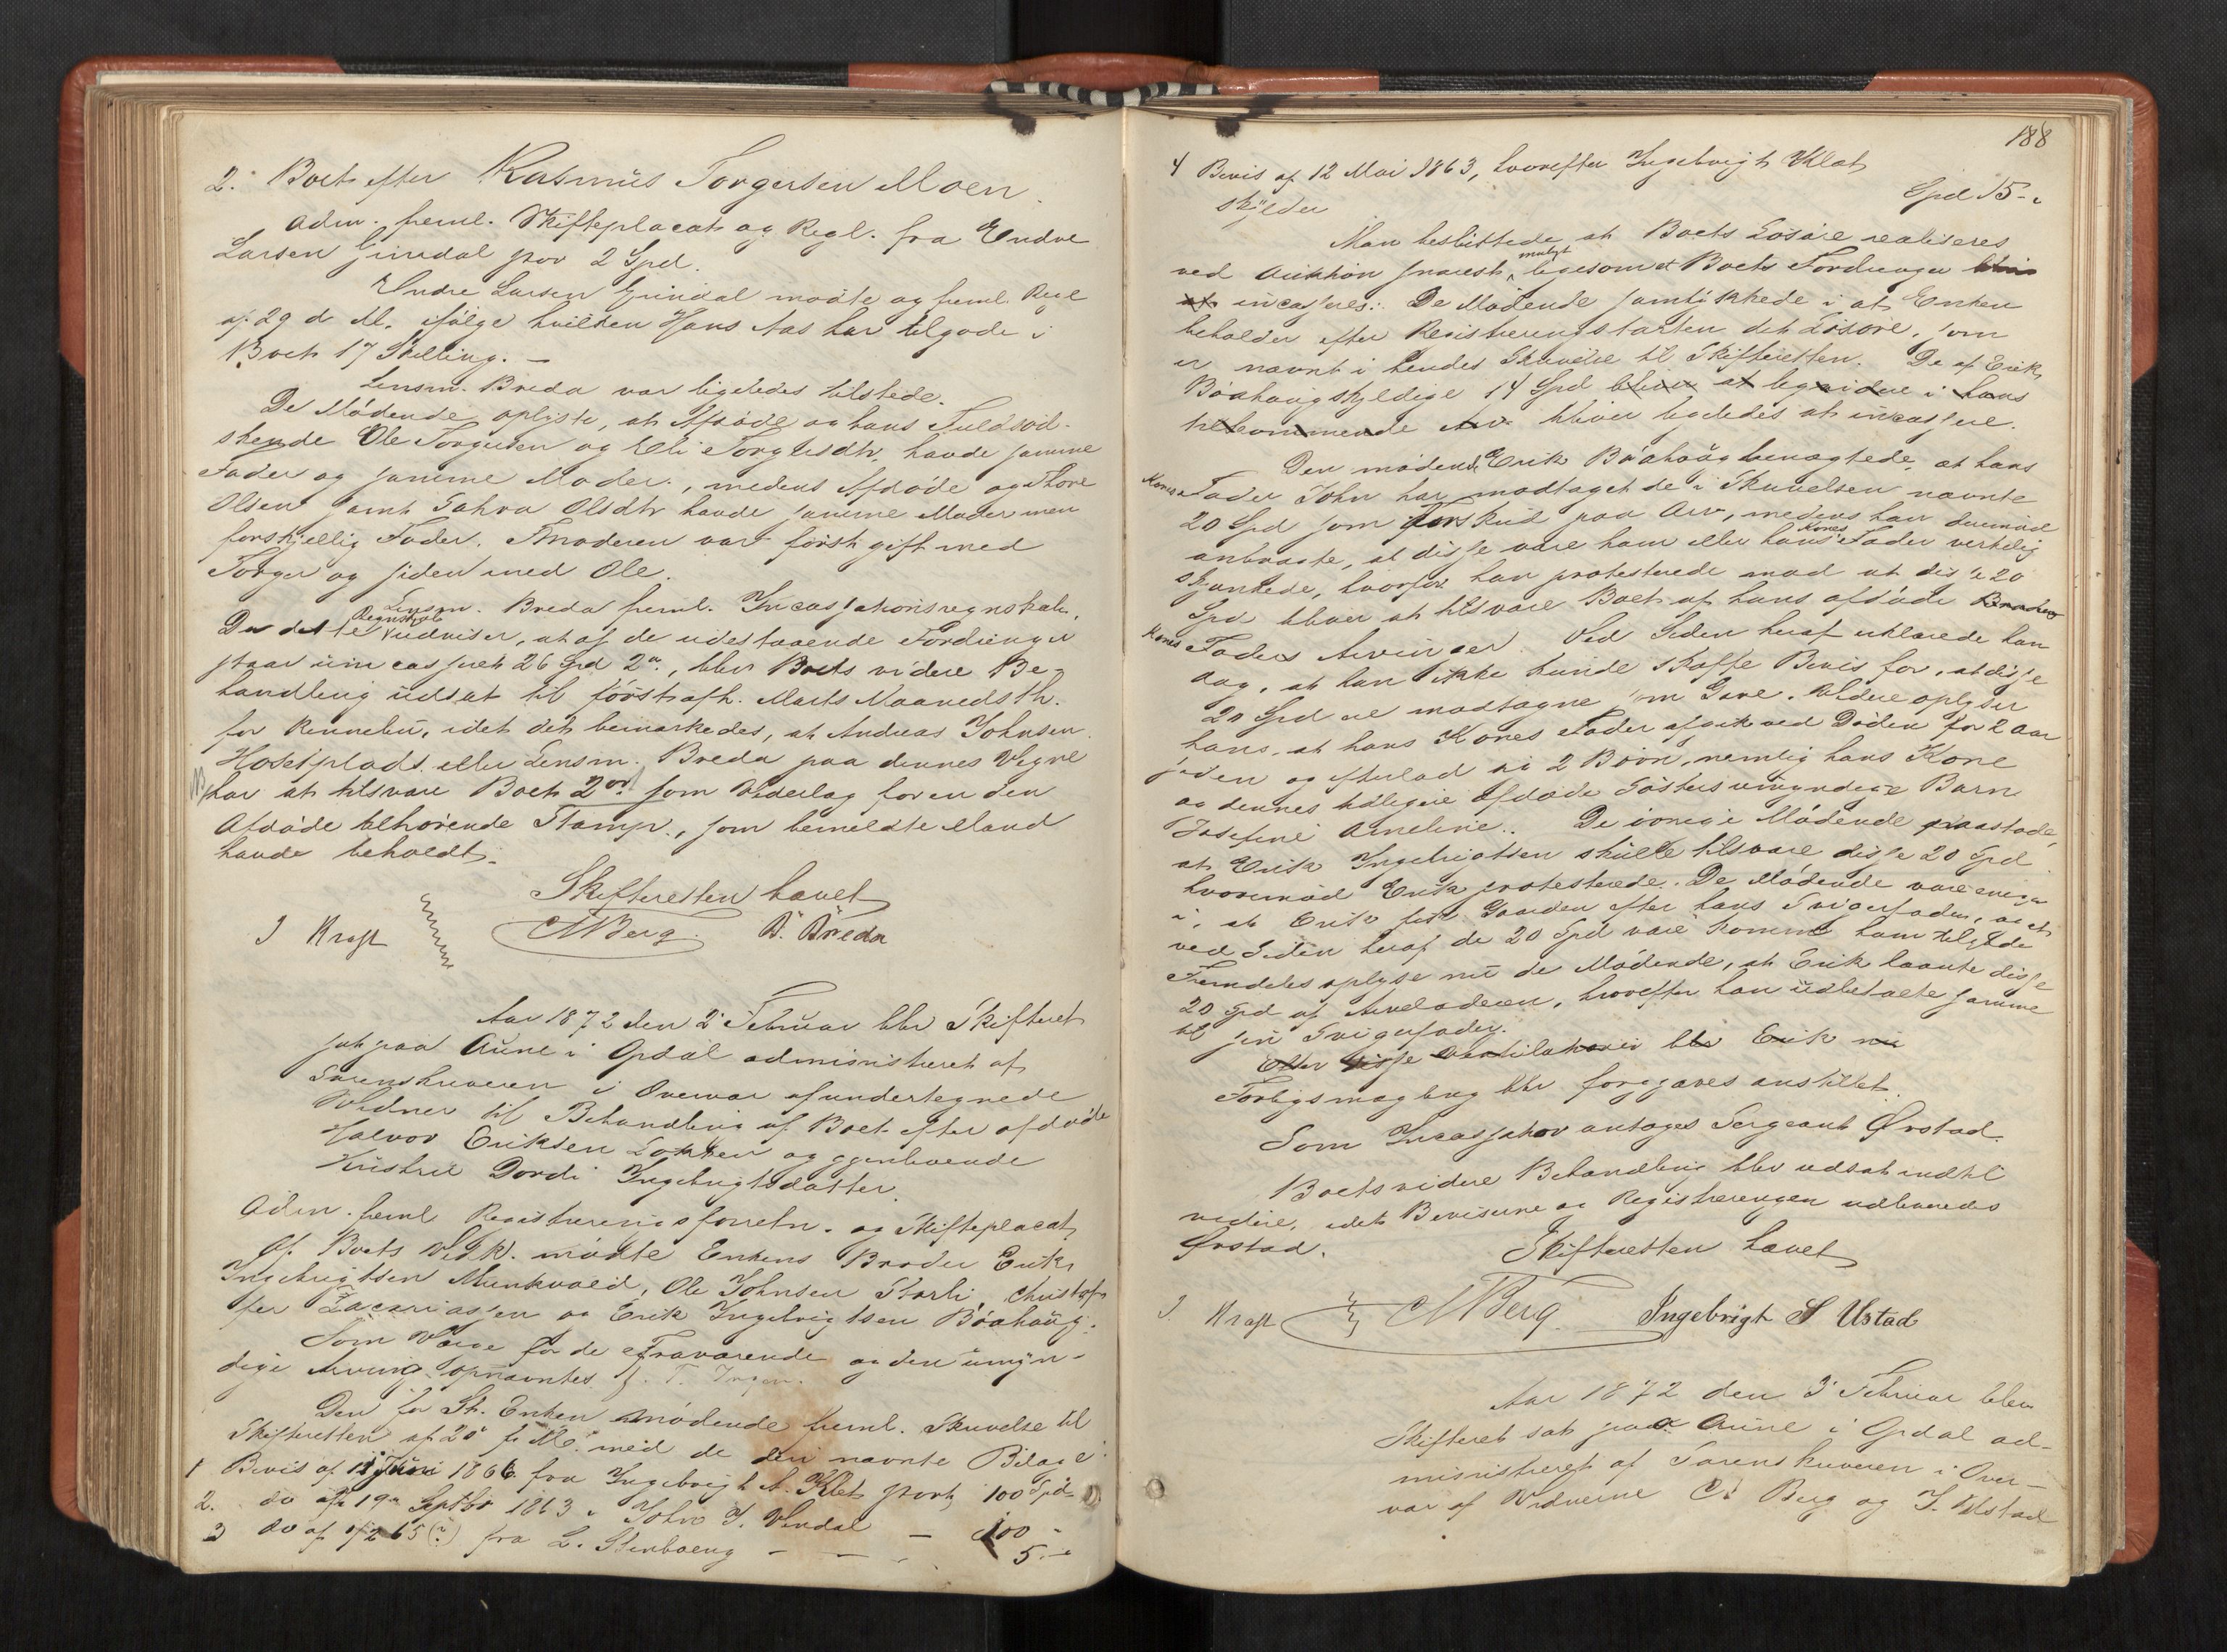 2. Boet efter Rasmus Torgersen Moen.
Adm. freml. Skifteplacat og Regl. fra Endre
Larsen Grindal for 2 Spd.
Endre Larsen Grindal mødte og freml. Regl
af 29 d. M. ifølge hvilken Hans Aas har tilgode i
Boet 17 Skilling. -
Lensm. Breda var ligeledes tilstede.
De Mødende oplyste, at Afdøde og hans Fuldsød-
skende Ole Torgersen og Eli Torgersdtr. havde samme
Fader og samme Moder, medens Afdøde og Tore
Olsen samt Olsdtr havde samme Moder men
forskjellig Fader. Moderen var først gift med
Torger og siden med Ole.
Lensm. Breda freml. Incassationsregnskab.
Da dette Regnskab udviser, at af de udestaaende Fordringer
staar uincasseret 26 Spd 2 , blev Boets videre Be-
handling udsat til først afh. Marts Maaneds Th.
for Rennebu, idet det bemærkedes, at Andreas Johnsen
Hoselplads eller Lensm. Breda paa dennes Vegne
har at tilsvare Boet 2 ort som Vederlag for en den
Afdøde tilhørende Stamp, som bemeldte Mand
havde beholdt.
Skifteretten hævet
I Kraft
Berg. B. Breda
Aar 1872 den 2 Februar blev Skifteret
sat paa Aune i Opdal administreret af
Sorenskriveren i Overvær af undertegnede
Vidner til Behandling af Boet efter afdøde
Halvor Eriksen Løkken og gjenlevende
Hustru Dordi Ingebrigtsdatter.
Adm. freml Registreringsforretn. og Skifteplacat
Af Boets Vedk. mødte Enkens Broder Erik
Ingebrigtsen Munkvold, Ole Johnsen Storli, Christof-
fer Zacariassen og Erik Ingebrigtsen Bøahaug.
Som Værge for de Fraværende og den umyn-
dige Arving opnævntes
Den for St. Enken mødende freml. Skrivelse til
Skifteretten af 20 f. M. med de deri nævnte Bilage:
1 Bevis af Juni 1866 fra Ingebrigt Klet stort 100 Spd
2. do af 19 Septbr 1863 " John J. Vindal — 100 -
3 do af 1/2 65 (?) fra L. Stenboeng - — - 5. -
188
4 Bevis af 12 Mai 1863, hvorefter Ingebrigt Klet
skylder Spd 15 -
Man besluttede at Boets Løsøre realiseres
ved Auktion snarest muligt ligesom at Boets Fordringer bliver
at incasseres. De Mødende samtykkede i at Enken
beholder efter Registreringstaxten det Løsøre, som
er nævnt i hendes Skrivelse til Skifteretten. De af Erik
Bøahaug skyldige 14 Spd bliver at liqvidere i hans
tilkommende Arv bliver ligeledes at incassere.
Den mødende Erik Bøahaug benægtede, at hans
Kones Fader John har modtaget de i Skrivelsen nævnte
20 Spd som Forskud paa Arv, medens han derimod
anbragte, at disse vare ham eller hans Kones Fader virkelig
skjænkede, hvorfor han protesterede mod at disse 20
Spd bliver at tilsvare Boet af hans afdøde
Kones Faders Arvinger. Ved Siden heraf erklærede han
dog, at han ikke kunde skaffe Bevis for, at disse
20 Spd ere modtagne som Gave. Videre oplyser
han, at hans Kones Fader afgik ved Døden for 2 Aar
siden og efterlod sig 2 Børn, nemlig hans Kone
og dennes tidligere afdøde Søsters umyndige Barn
Josefine Ameline. De øvrige Mødende paastode,
at Erik Ingebrigtsen skulle tilsvare disse 20 Spd
hvorimod Erik protesterede. De Mødende vare enige
i, at Erik fik Gaarden efter hans Svigerfader, og at
ved Siden heraf de 20 Spd vare komne ham tilgode
Fremdeles oplyse nu de Mødende, at Erik laante disse
20 Spd af Arveladeren, hvorefter han udbetalte samme
til sin Svigerfader.
Efter disse blev Erik nu
Forligsmægling blev forgjæves anstillet.
Som Incassator antoges Sergeant Ørstad.
Boets videre Behandling blev udsat indtil
videre, idet Beviserne og Registreringen udleveredes
Ørstad.
Skifteretten hævet
I. Kraft
Berg. Ingebrigt S Ustad
Aar 1872 den 3 Februar blev
Skifteret sat paa Aune i Opdal ad-
ministreret af Sorenskriveren i Over-
vær af Vidnerne Berg og I. Ustad